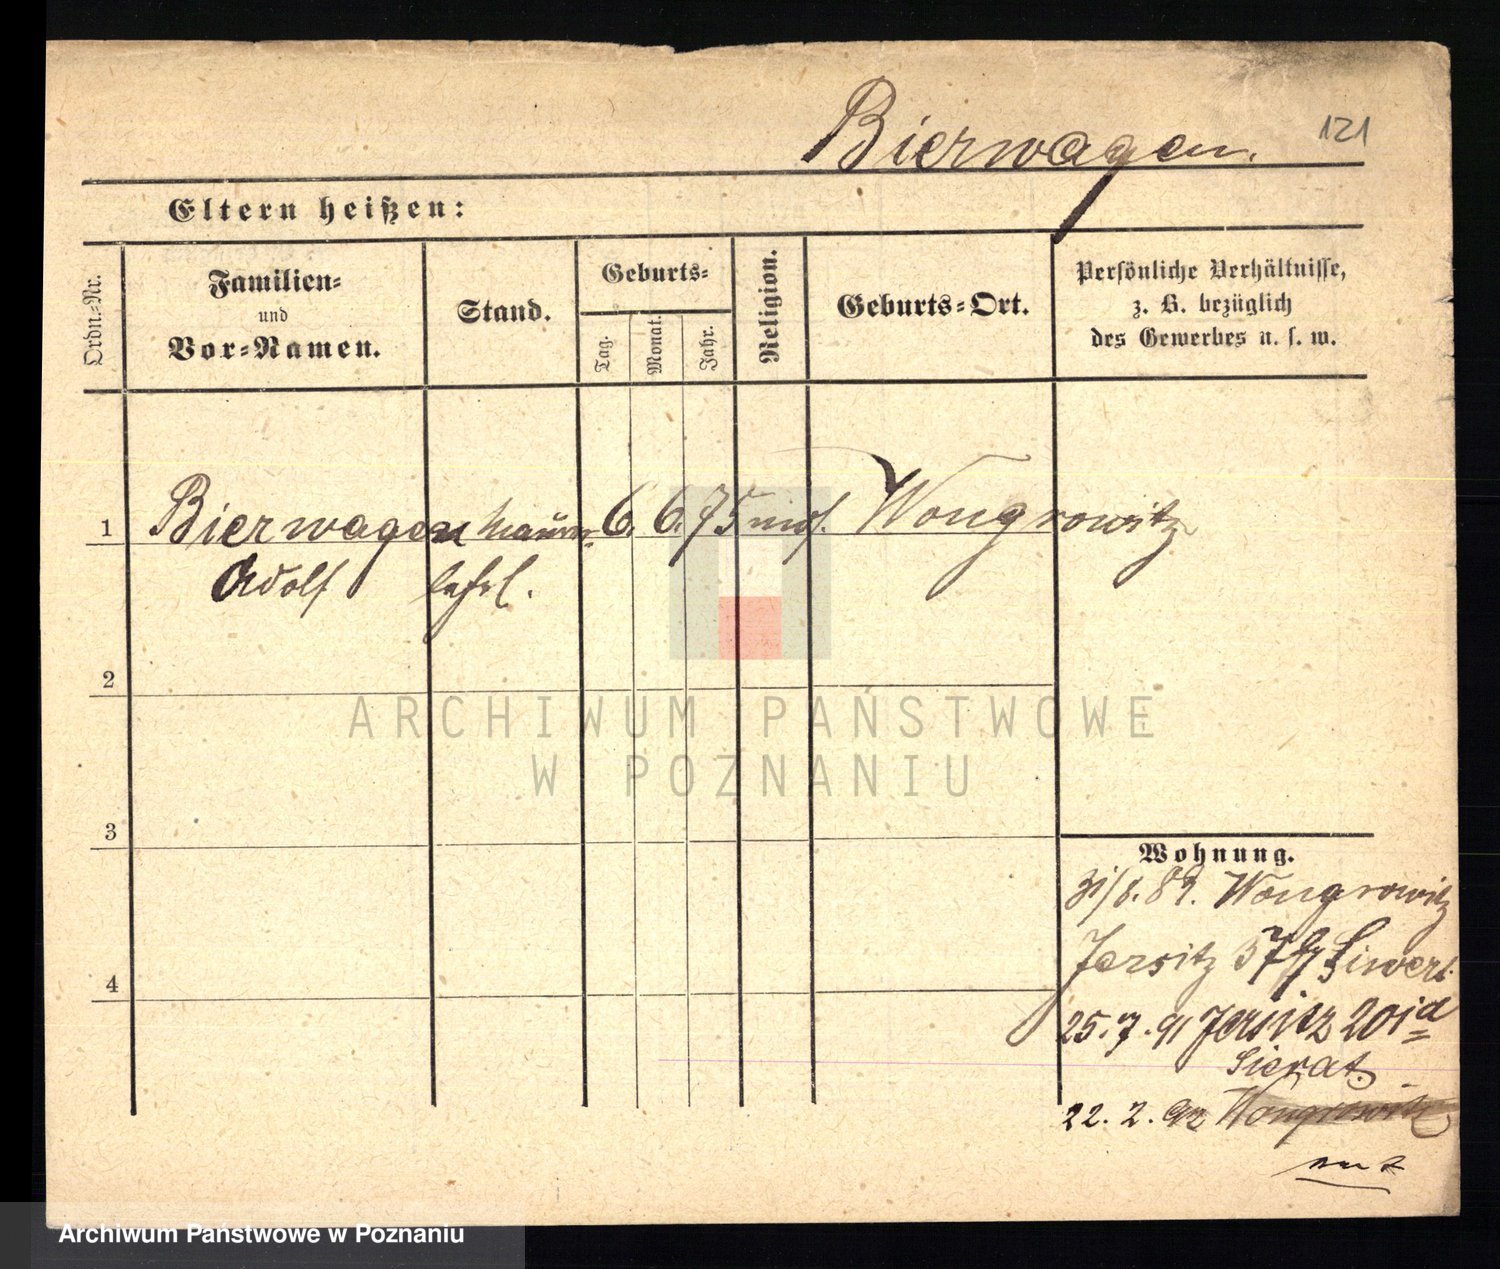 Bierwagen.
121
Eltern heißen:
Ordn.-Nr.
Familien-
und
Vor-Namen.
Stand.
Geburts-
Tag.
Monat.
Jahr.
Religion.
Geburts-Ort.
Persönliche Verhältnisse,
z. B. bezüglich
des Gewerbes u. s. w.
1 Bierwagen Maurer- 6. 6. 75 mos. Wongrowitz
Adolf lehrl.
2
3
4
ARCHIWUM PAŃSTWOWE
W POZNANIU
Wohnung.
31/8. 89. Wongrowitz
Jersitz
25.7.91 Jersitz 201d
Sierat.
22. 2. 92 Wongrowitz
Archiwum Państwowe w Poznaniu